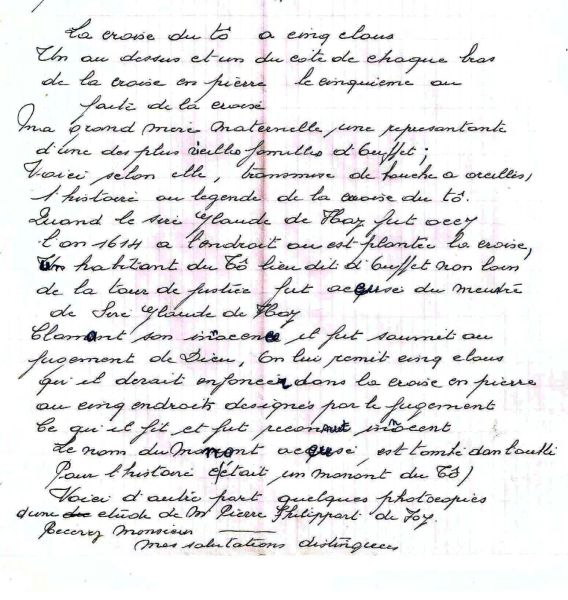 La croise du tô a cinq claus
Un au dessus et un du coté de chaque bras
de la croise en pierre le cinquieme au
faité de la croise
Ma grand mere maternelle, une representante
d'une des plus vieilles familles d'Ouffet;
Voici selon elle, transmise de bouche a oreilles,
l'histoire ou legende de la croise du tô.
Quand le sire Glaude de Hoz fut occy
l'an 1614 a l'endroit ou est plantée la croise,
Un habitant du Tô lieu dit d'Ouffet non loin
de la tour de justice fut accusé du meurtre
de Sire Glaude de Hoz
Clamant son inocence il fut soumit au
jugement de Dieu, On lui remit cinq claus
qu'il devait enfoncer dans la croise en pierre
au cinq endroits designés par le jugement
Ce qu'il fit et fut reconnut inocent
Le nom du Manont accusé, est tombé dan l'oubli
Pour l'histoire c'était un manont du Tô)
Voici d'autre part quelques photocopies
d'une etude de Mr Pierre Philippart de Foy.
Recevez Monsieur
mes salutations distinguees